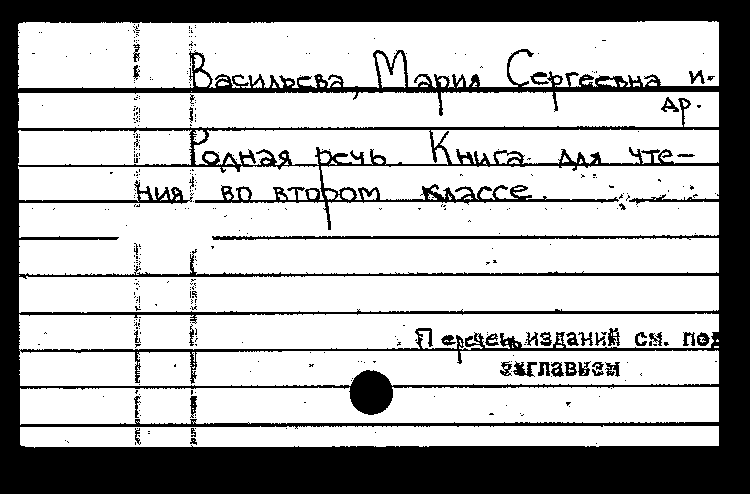 Васильева, Мария Сергеевна и.
др.
Родная речь. Книга для чте-
ния во втором классе.
Перечень изданий см. под
заглавием